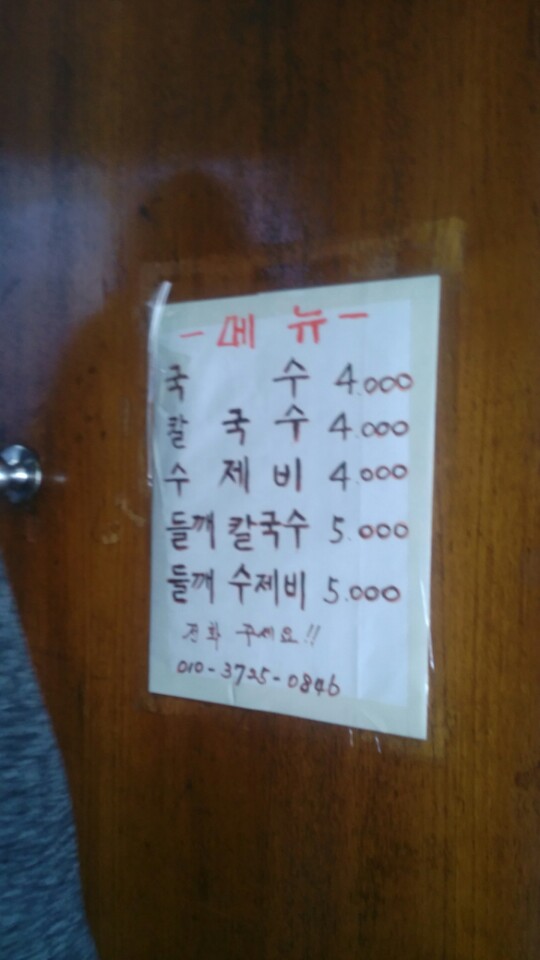 - 메 뉴 -
국 수 4.000
칼 국 수 4.000
수 제 비 4.000
들깨 칼국수 5.000
들깨 수제비 5.000
전화 주세요!!
010-3725-0846